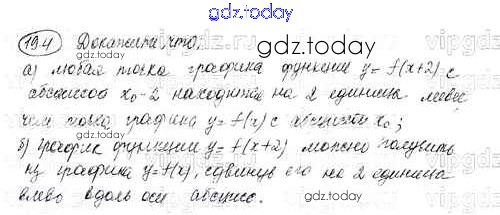 gdz.today
19.4 Докажите, что:
gdz.today
а) любая точка графика функции y = f(x+2) с
абсциссой x₀-2 находится на 2 единицы левее
чем точка графика y = f(x) с абсциссой x₀;
б) график функции y = f(x+2) можно получить
из графика y = f(x), сдвинув его на 2 единицы
влево вдоль оси абсцисс.
gdz.today